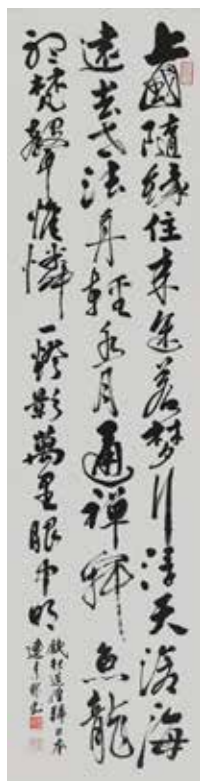 上國隨緣住来途若夢行浮天滄海
遠去世法舟輕水月通禪寂魚龍
聽梵聲惟憐一燈影萬里眼中明
錢起送僧歸日本
書